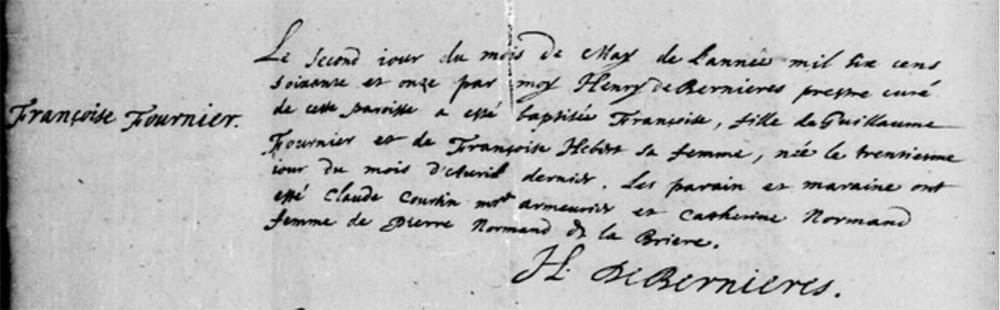 Françoise Fournier.
Le second iour du mois de May de L'année mil six cens
soixante et onze par moy Henry de Bernieres prestre curé
de cette paroisse a esté baptisée Françoise, fille de Guillaume
Fournier et de Françoise Hebert sa femme, née le trentiesme
iour du mois d'Auril dernier. Les parain et maraine ont
esté Claude Courtin mre armeurier et Catherine Normand
femme de Pierre Normand de la Briere.
H. De Bernieres.